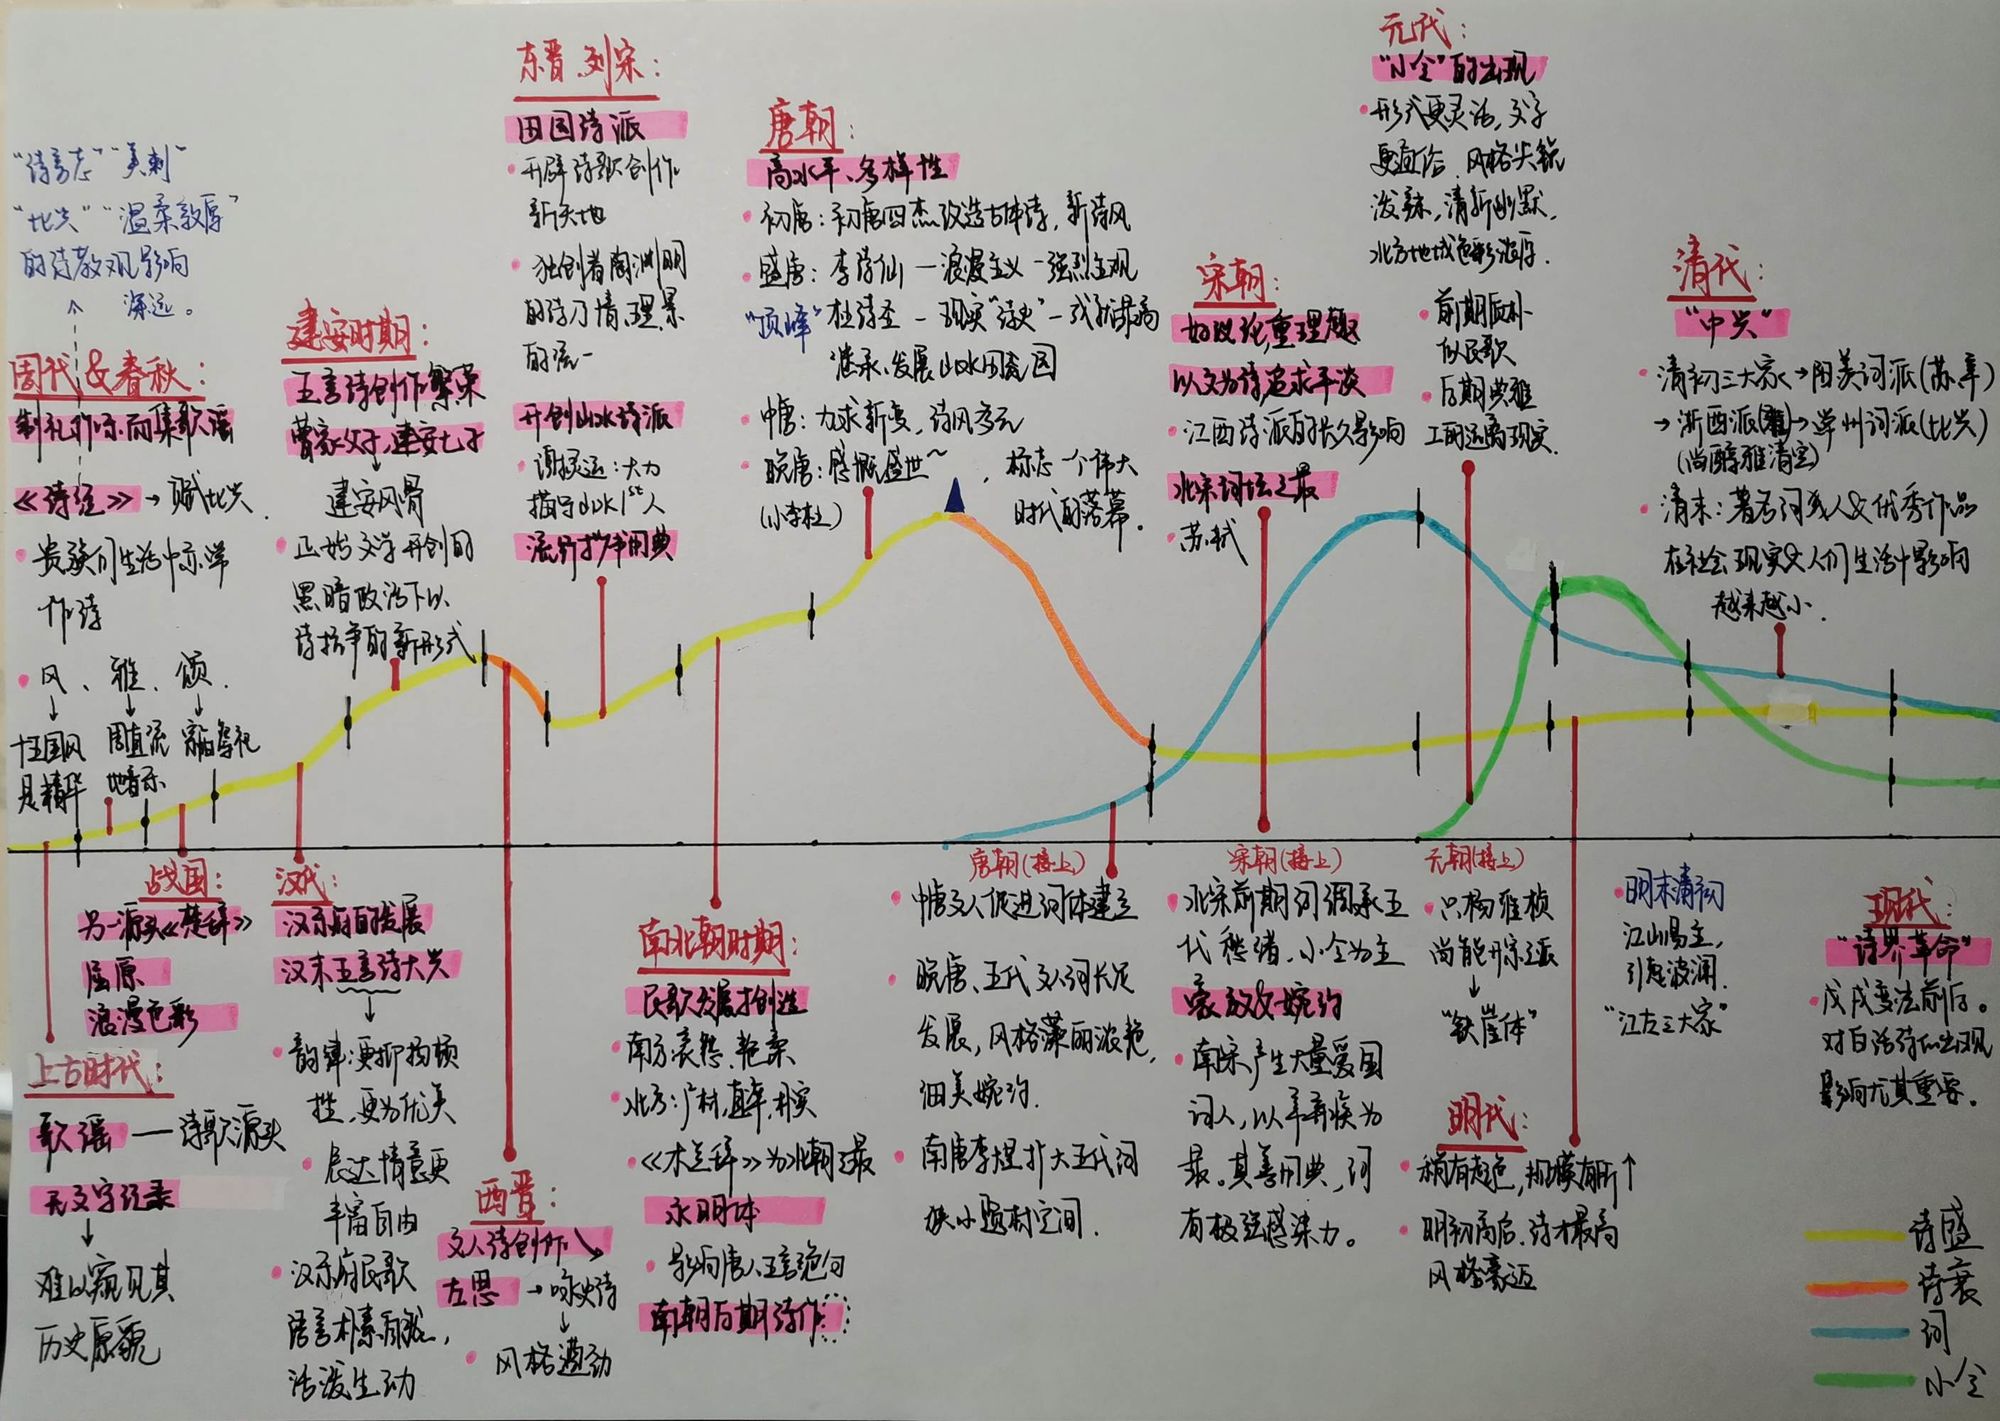 "诗言志" "美刺"
"比兴" "温柔敦厚"
的诗教观影响
深远。
周代&春秋:
制礼作乐而集歌谣
《诗经》→赋比兴.
贵族们生活中亦常
作诗
风、雅、颂.
十五国风
是精华
周直流
地音乐
宗庙祭祀
建安时期:
五言诗创作繁荣
曹家父子,建安七子
建安风骨
正始文学开创的
黑暗政治下以
诗抗争的新形式
东晋.刘宋:
田园诗派
开辟诗歌创作
新天地
独创者陶渊明
的诗乃情.理.景
的统一
开创山水诗派
谢灵运:大力
描写山水1st人
流行拟作用典
唐朝:
高水平、多样性
初唐:初唐四杰改造古体诗,新诗风
盛唐:李诗仙—浪漫主义—强烈主观
"顶峰" 杜诗圣—现实"诗史"—成就最高
继承、发展山水田园
中唐:力求新变,诗风多元
晚唐:感慨盛世~,标志一个伟大
(小李杜)
时代的落幕.
宋朝:
好议论,重理趣
以文为诗,追求平淡
江西诗派的长久影响
北宋词坛之最
苏轼
元代:
"小令"的出现
形式更灵活,文字
更通俗,风格尖锐
泼辣,清新幽默,
北方地域色彩浓厚.
前期质朴
似民歌
后期典雅
工丽远离现实.
清代:
"中兴"
清初三大家→阳羡词派(苏.辛)
→浙西派→常州词派(比兴)
(尚醇雅清空)
清末:著名词人&优秀作品
在社会现实&人们生活中影响
越来越小.
战国:
另一源头《楚辞》
屈原
浪漫色彩
上古时代:
歌谣—诗歌源头
无文字记录
难以窥见其
历史原貌
汉代:
汉乐府的发展
汉末五言诗大兴
韵律:更抑扬顿
挫,更为优美
表达情意更
丰富自由
汉乐府民歌
语言朴素自然,
活泼生动
西晋:
文人诗创作↘
左思→咏史诗
风格遒劲
南北朝时期:
民歌发展才创造
南方:哀怨、艳柔
北方:广材,直率,朴实
《木兰辞》为北朝之最
永明体
影响唐人五言绝句
南朝后期诗作
唐朝(接上)
中唐文人促进词体建立
晚唐、五代文人词长足
发展,风格藻丽浓艳,
细美婉约.
南唐李煜扩大五代词
狭小题材空间.
宋朝(接上)
北宋前期词调承五
代愁绪,小令为主
豪放&婉约
南宋产生大量爱国
词人,以辛弃疾为
最。其善用典,词
有极强感染力。
元朝(接上)
只杨维桢
尚能开宗立派
"铁崖体"
明代:
稍有起色,规模有所↑
明初高启.诗才最高
风格豪迈
明末清初
江山易主,
引起波澜.
"江左三大家"
现代:
"诗界革命"
戊戌变法前后。
对白话诗的出现
影响尤其重要。
诗盛
诗衰
词
小令